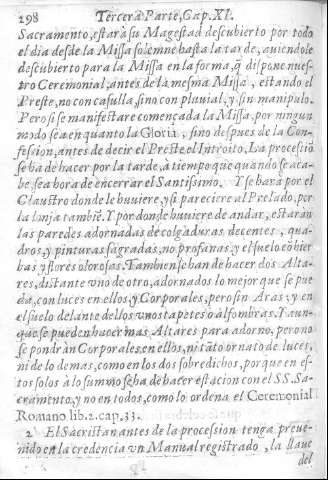 298 Tercera Parte, Cap. XI.
Sacramento, estarà su Magestad descubierto por todo
el dia desde la Missa solemne hasta la tarde, auiendole
descubierto para la Missa en la forma, q̃ dispone nues-
tro Ceremonial, antes de la mesma Missa, estando el
Preste, no con casulla, sino con pluuial, y sin manipulo.
Pero si se manifestare començada la Missa, por ningun
modo sea en quanto la Gloria, sino despues de la Con-
fession, antes de decir el Preste el Introito. La processiõ
se ha de hacer por la tarde, à tiempo que quando se aca-
be, sea hora de encerrar el Santissimo. Y se harà por el
Claustro donde le huuiere, y si pareciere al Prelado, por
la lonja tambiẽ. Y por donde huuiere de andar, estaràn
las paredes adornadas de colgaduras decentes, qua-
dros, y pinturas sagradas, no profanas, y el suelo cõ hier
bas y flores olorosas. Tambien se han de hacer dos Alta-
res, distante vno de otro, adornados lo mejor que se pue
da, con luces en ellos, y Corporales, pero sin Aras: y en
el suelo delante dellos vnos tapetes ò alfombras. Y aun-
que se pueden hacer mas Altares para adorno, pero no
se pondràn Corporales en ellos, ni tãto ornato de luces,
ni de lo demas, como en los dos sobredichos, porque en es-
tos solos à lo sumo se ha de hacer estacion con el SS. Sa-
cramento, y no en todos, como lo ordena el Ceremonial
Romano lib. 2. cap. 33.
2 El Sacristan antes de la procession tenga preue-
nido en la credencia vn Manual registrado, la llaue
del